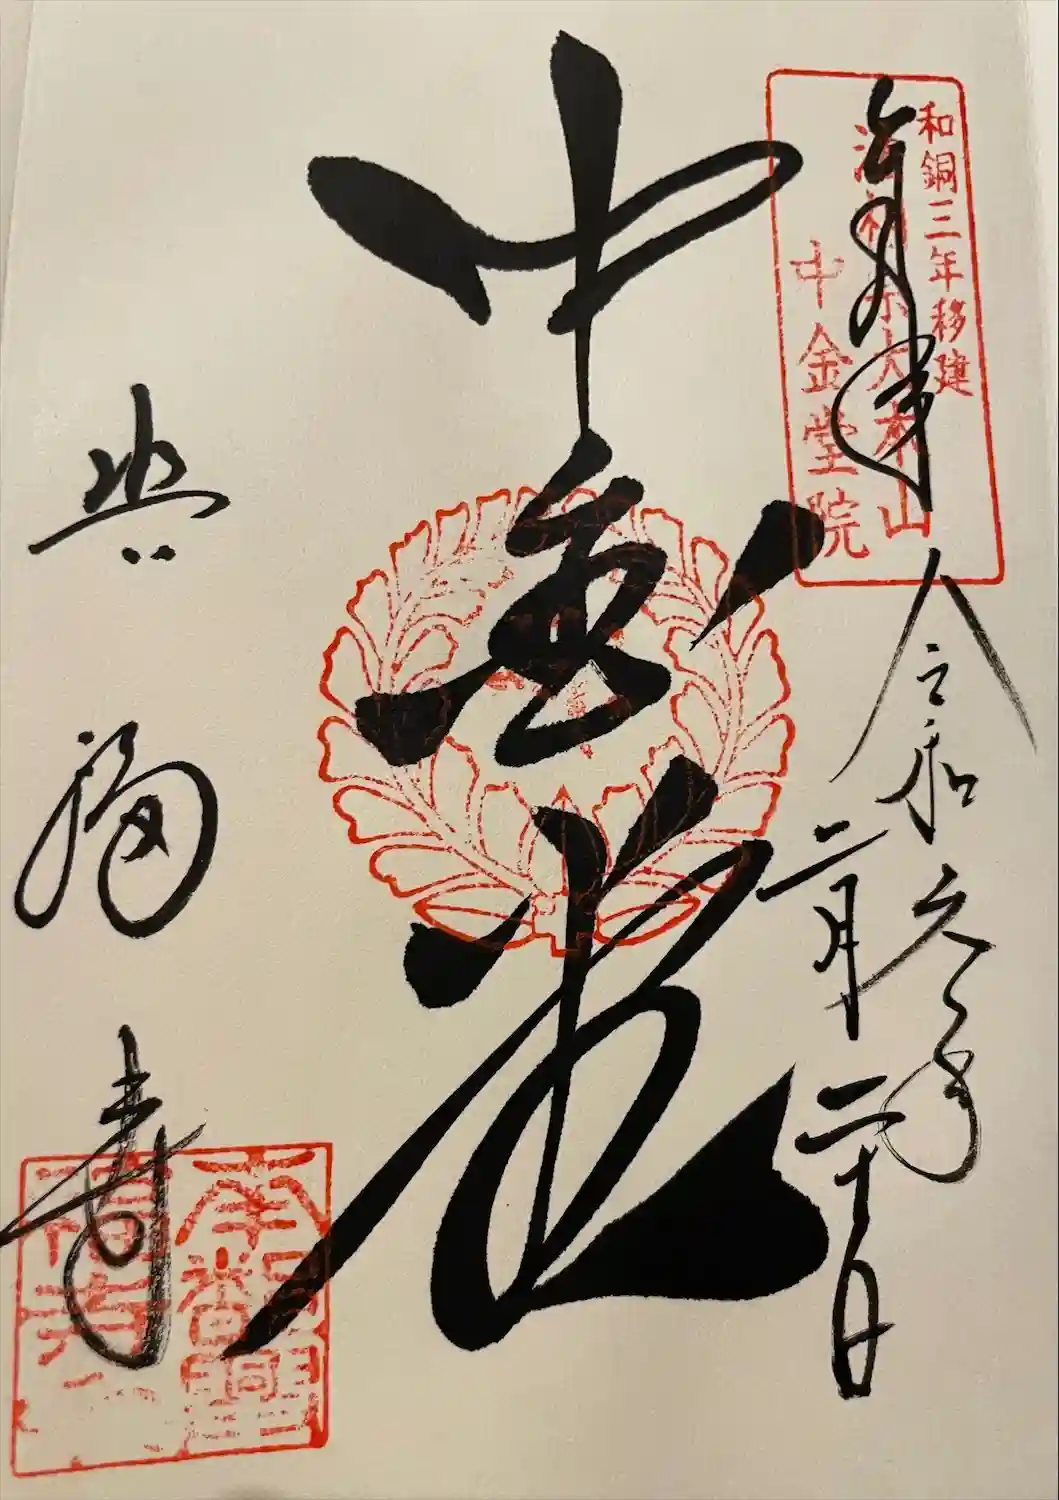 和銅三年移建
法相宗大本山
中金堂院
令和六年
二月二十日
中金堂
興福寺